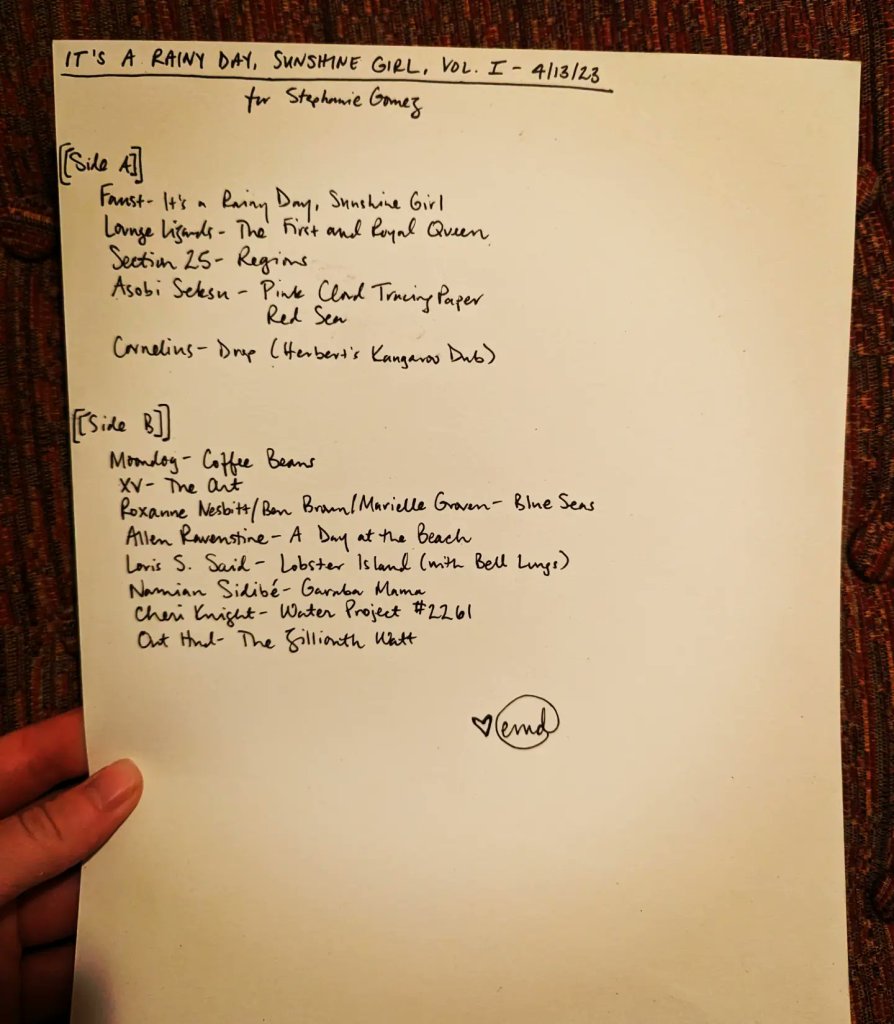 IT'S A RAINY DAY, SUNSHINE GIRL, VOL. I - 4/13/23
for Stephanie Gomez
[[Side A]]
Faust - It's a Rainy Day, Sunshine Girl
Lounge Lizards - The First and Royal Queen
Section 25 - Regions
Asobi Seksu - Pink Cloud Tracing Paper
Red Sea
Cornelius - Drop (Herbert's Kangaroo Dub)
[[Side B]]
Moondog - Coffee Beans
XV - The Art
Roxanne Nesbitt/Ben Brown/Marielle Groven - Blue Seas
Allen Ravenstine - A Day at the Beach
Loris S. Sarid - Lobster Island (with Bell Lungs)
Namian Sidibé - Garaba Mama
Cheri Knight - Water Project #2261
Out Hud - The Zillionth Watt
♥ emd